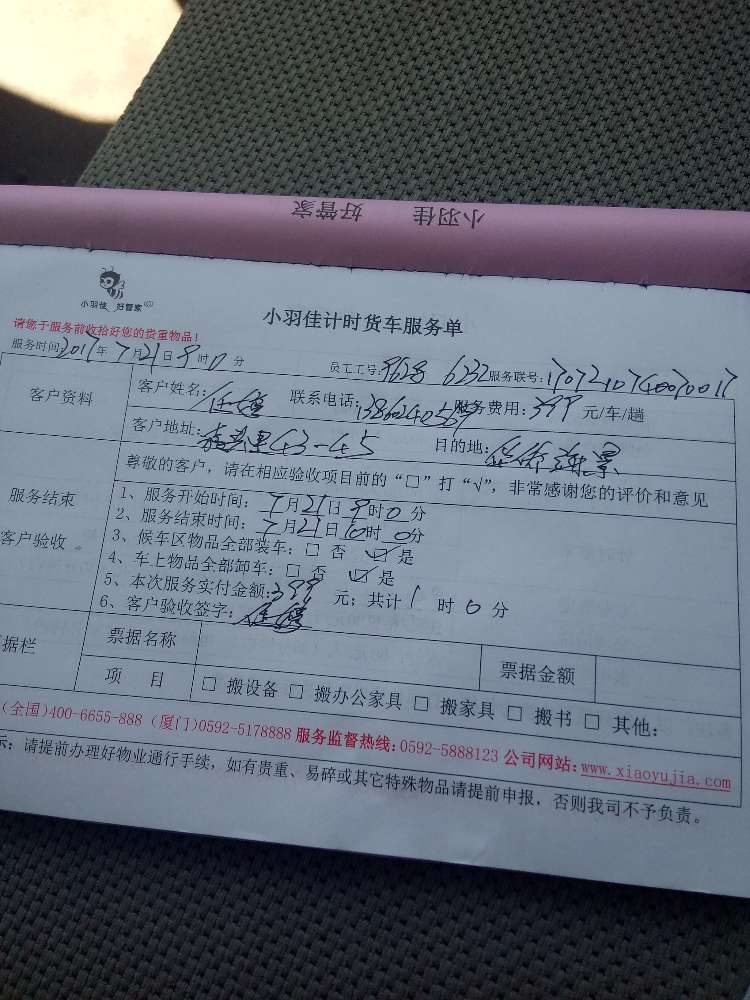 小羽佳 好管家
小羽佳 好管家
小羽佳计时货车服务单
请您于服务前收拾好您的贵重物品！
服务时间:2017年7月21日9时0分 员工工号: 6232 服务联号:
客户资料 客户姓名: 任 联系电话: 服务费用:399元/车/趟
客户地址: 43-45 目的地: 海景
尊敬的客户，请在相应验收项目前的“□”打“√”，非常感谢您的评价和意见
服务结束
客户验收
1、服务开始时间:7月21日9时0分
2、服务结束时间:7月21日10时0分
3、候车区物品全部装车:□ 否 ☑ 是
4、车上物品全部卸车:□ 否 ☑ 是
5、本次服务实付金额:399元; 共计1时0分
6、客户验收签字: 任
据栏 票据名称 票据金额
项 目 □ 搬设备 □ 搬办公家具 □ 搬家具 □ 搬书 □ 其他:
(全国)400-6655-888 (厦门)0592-5178888 服务监督热线:0592-5888123 公司网站:www.xiaoyujia.com
示: 请提前办理好物业通行手续，如有贵重、易碎或其它特殊物品请提前申报，否则我司不予负责。